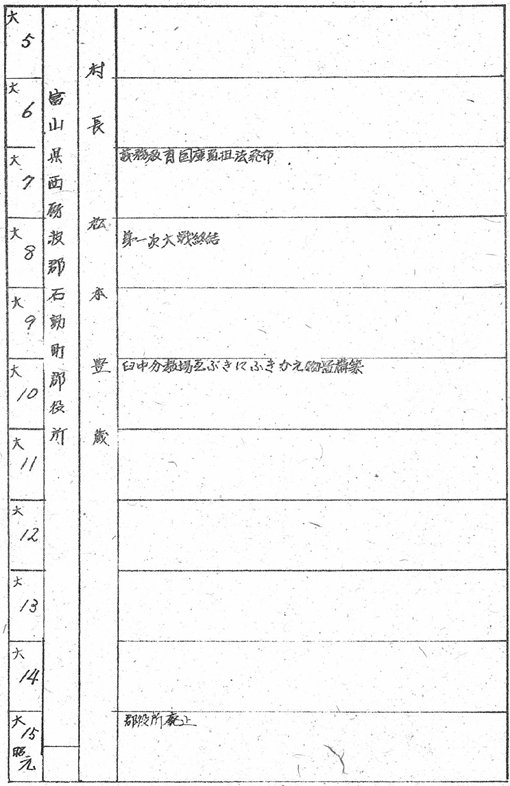 大5
大6
大7
大8
大9
大10
大11
大12
大13
大14
大15
昭元
富山県西砺波郡石動町郡役所
村長 松本豊歳
義務教育国庫負担法発布
第一次大戦終結
臼中分教場瓦ぶきにふきかえ物置構築
郡役所廃止